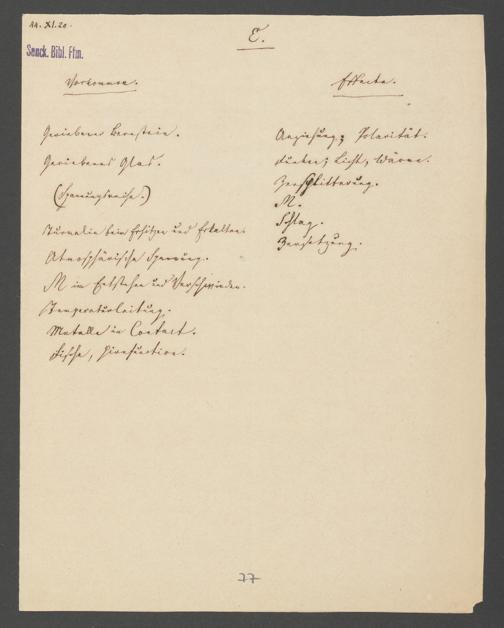 14. XI. 20.
Senck. Bibl. Ffm.
E.
Vorkommen.
Geriebener Bernstein.
Geriebenes Glas.
(Spannungsreihe.)
Turmalin beim Erhitzen und Erkalten.
Atmosphärische Spannung.
M in Entstehen und Verschwinden.
Temperaturleitung.
Metalle in Contact.
Fische,
Effecte.
Anziehung; Polarität.
Funken; Licht, Wärme.
Zersplitterung.
M.
Schlag.
Zersetzung.
77